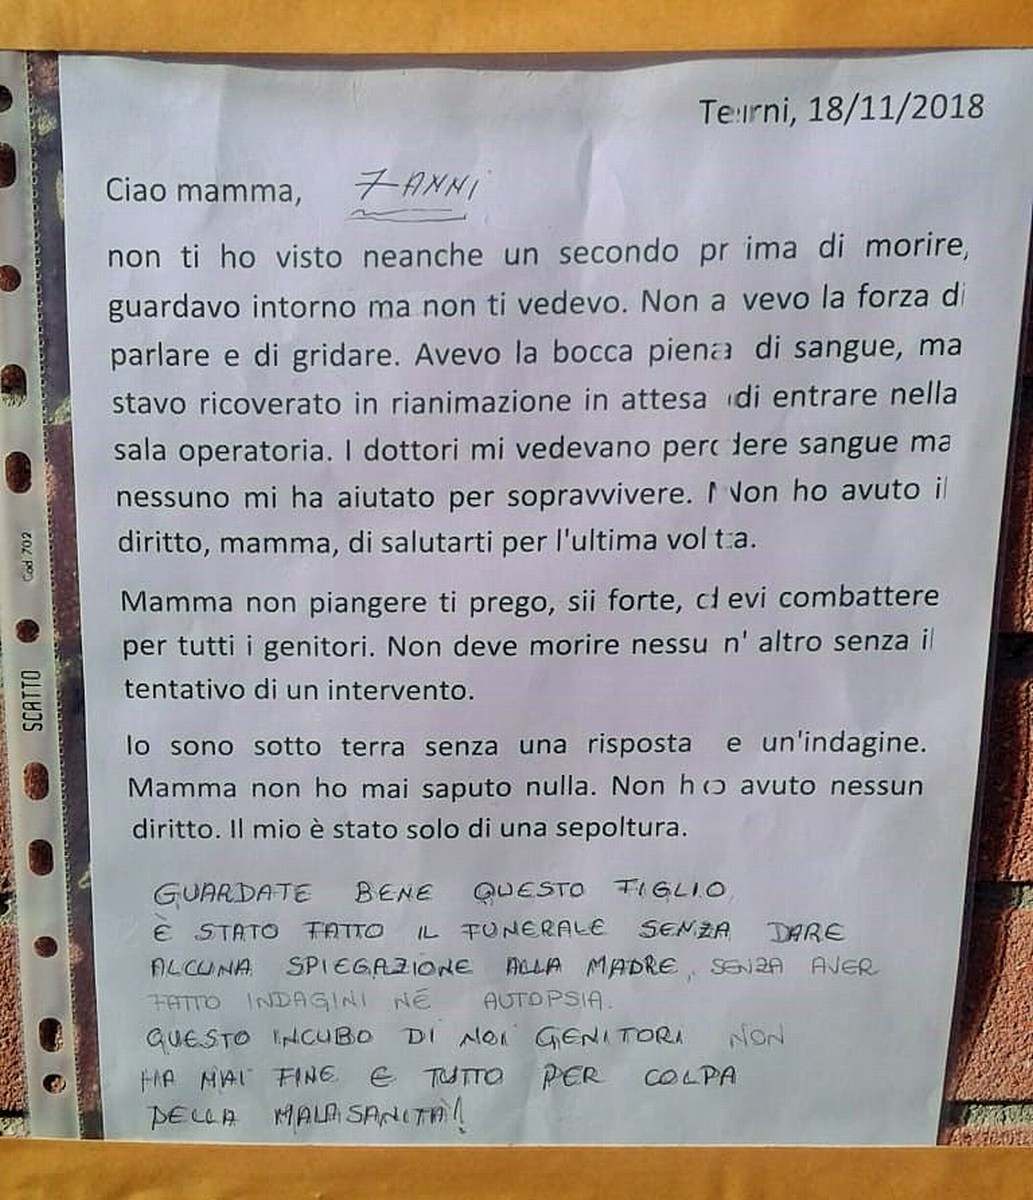 Terni, 18/11/2018
Ciao mamma, 7 ANNI
non ti ho visto neanche un secondo prima di morire,
guardavo intorno ma non ti vedevo. Non avevo la forza di
parlare e di gridare. Avevo la bocca piena di sangue, ma
stavo ricoverato in rianimazione in attesa di entrare nella
sala operatoria. I dottori mi vedevano perdere sangue ma
nessuno mi ha aiutato per sopravvivere. Non ho avuto il
diritto, mamma, di salutarti per l'ultima volta.
Mamma non piangere ti prego, sii forte, devi combattere
per tutti i genitori. Non deve morire nessun' altro senza il
tentativo di un intervento.
Io sono sotto terra senza una risposta e un'indagine.
Mamma non ho mai saputo nulla. Non ho avuto nessun
diritto. Il mio è stato solo di una sepoltura.
GUARDATE BENE QUESTO FIGLIO,
È STATO FATTO IL FUNERALE SENZA DARE
ALCUNA SPIEGAZIONE ALLA MADRE, SENZA AVER
FATTO INDAGINI NÉ AUTOPSIA.
QUESTO INCUBO DI NOI GENITORI NON
HA MAI FINE E TUTTO PER COLPA
DELLA MALASANITÀ!
SCATTO Cod 702